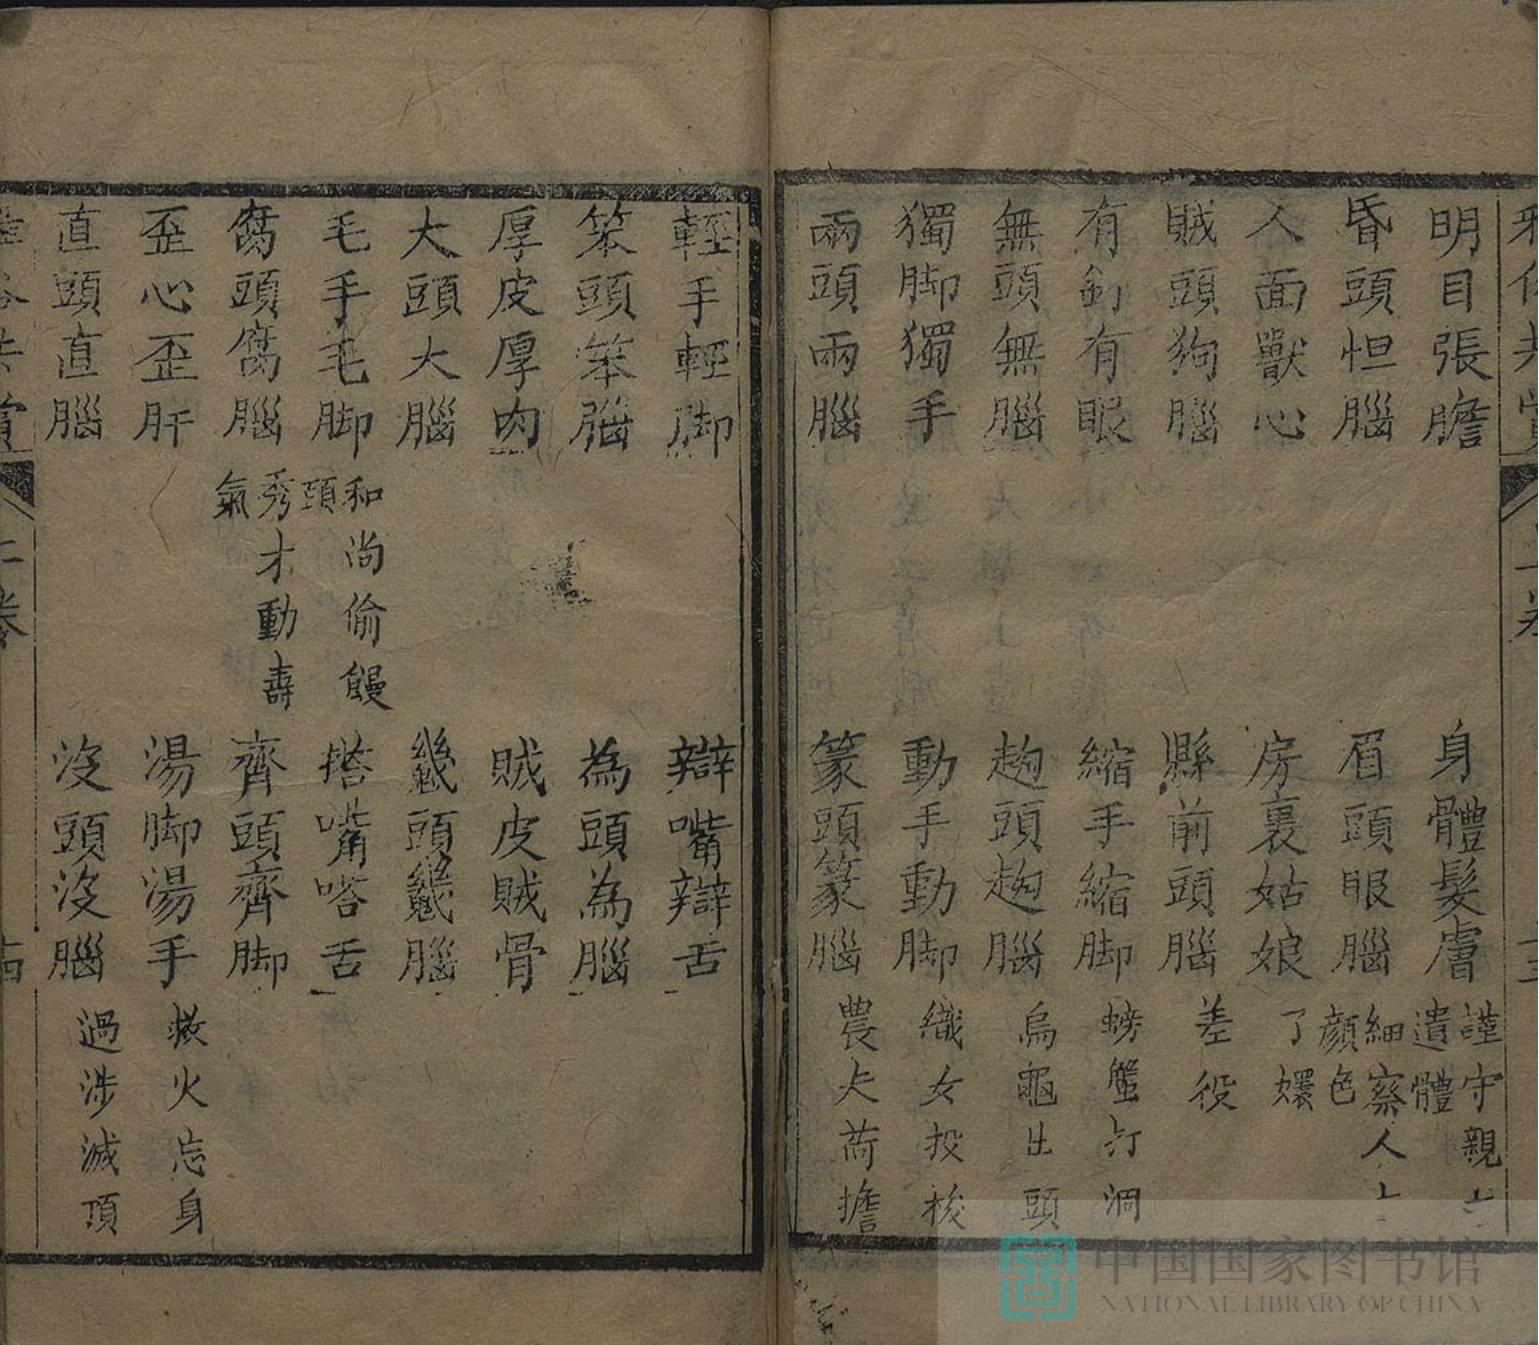 明目張膽 身體髮膚 謹守親
遺體
昏頭怛腦 眉頭眼腦 細察人
顏色
人面獸心 房裏姑娘 了嬛
賊頭狗腦 縣前頭腦 差役
有劍有眼 縮手縮脚 螃蟹打洞
無頭無腦 趨頭趨腦 烏龜出頭
獨脚獨手 動手動脚 織女投梭
兩頭兩腦 篆頭篆腦 農夫荷擔
輕手輕脚 辯嘴辯舌
笨頭笨腦 為頭為腦
厚皮厚肉 賊皮賊骨
大頭大腦 頭腦
毛手毛脚 和尚偷饅頭 搭嘴嗒舌
腐頭腐腦 秀才動壽氣 齊頭齊脚
歪心歪肝 湯脚湯手 救火忘身
直頭直腦 沒頭沒腦 過涉滅頂
中国国家图书馆
NATIONAL LIBRARY OF CHINA